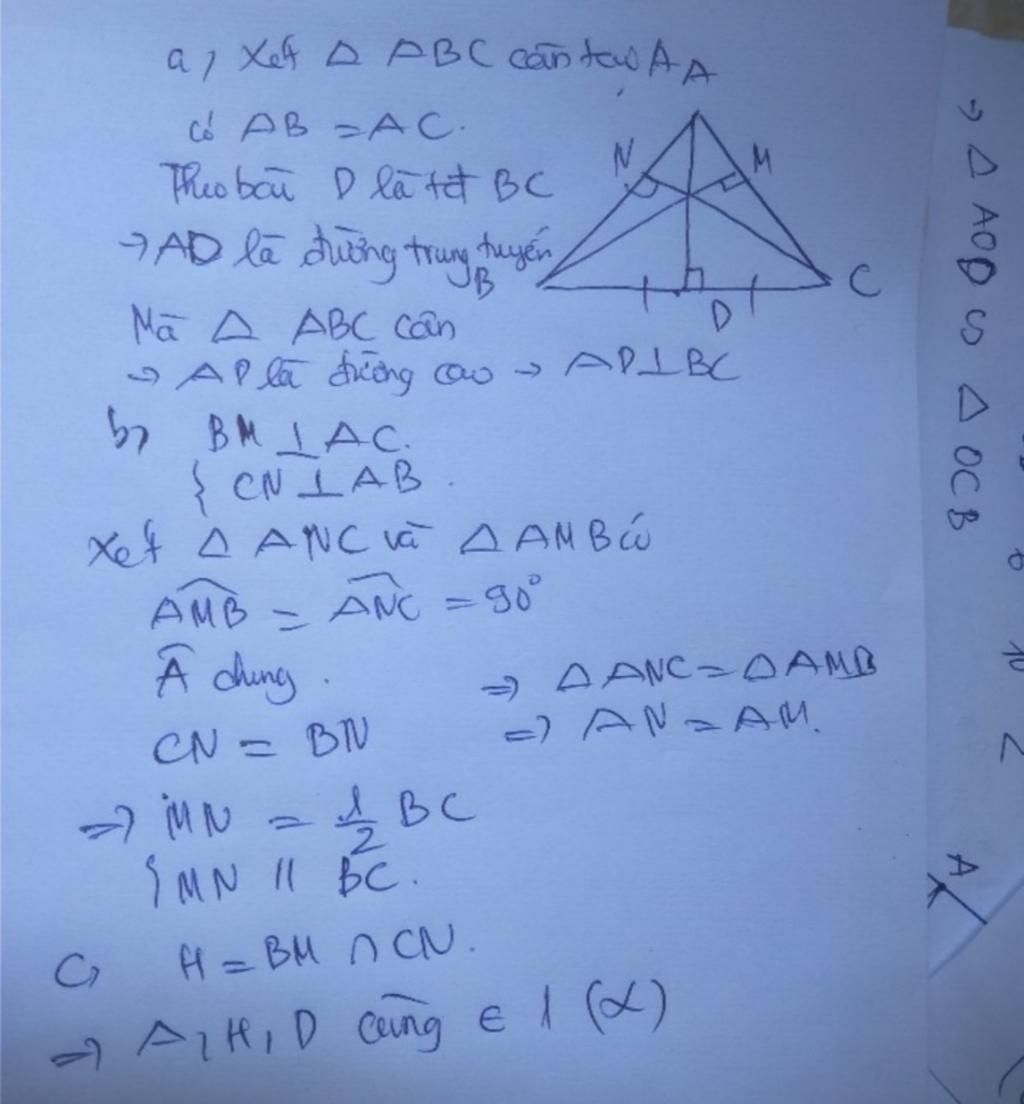 a, Xét Δ ABC cân tại A
A
có AB = AC.
N M
Theo bài D là tđ BC
→ AD là đường trung tuyến
B C
D
Mà Δ ABC cân
→ AD là đường cao → AD ⊥ BC
b, BM ⊥ AC.
{ CN ⊥ AB.
Xét Δ ANC và Δ AMB có
AMB = ANC = 90°
Â chung.
⇒ Δ ANC = Δ AMB
CN = BN
⇒ AN = AM.
⇒ MN = 1/2 BC
{ MN // BC.
C, H = BM ∩ CN.
⇒ A, H, D cùng ∈ 1 (α)
→ Δ AOD S Δ OCB
A